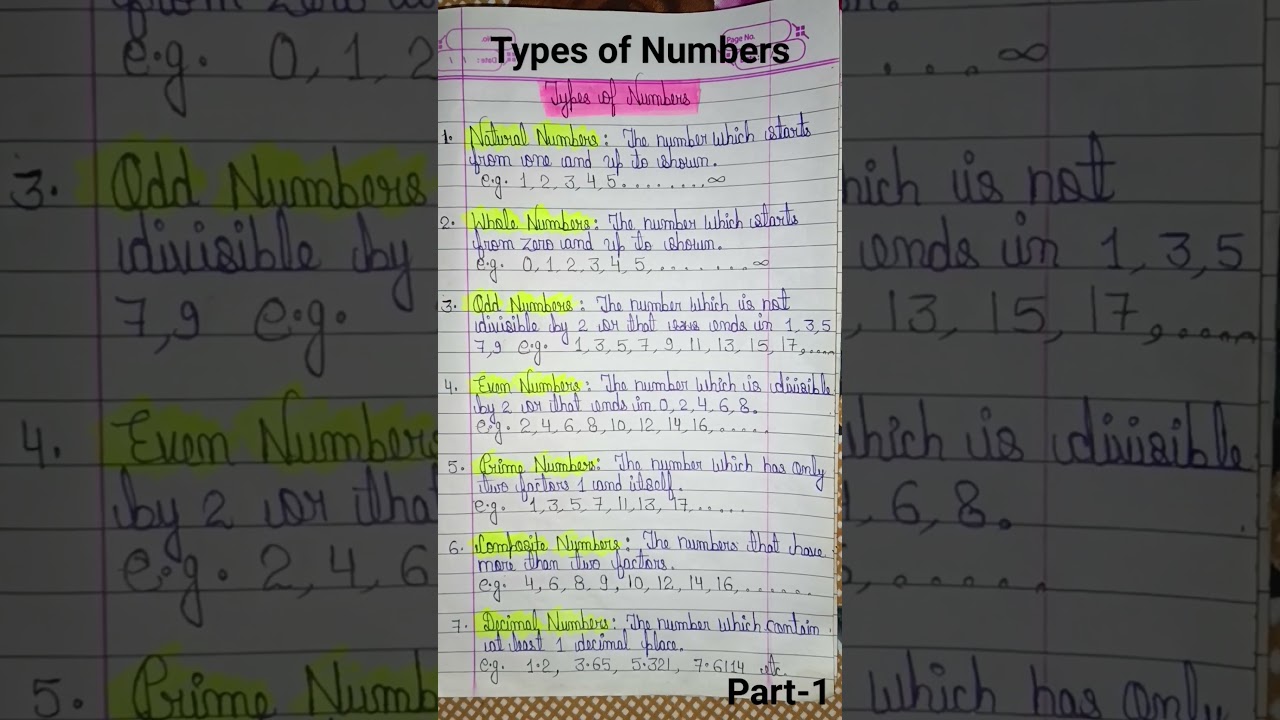 Types of Numbers
Page No.
Types of Numbers
1. Natural Numbers: The number which starts
from one and up to shown.
e.g. 1, 2, 3, 4, 5........∞
2. Whole Numbers: The number which starts
from zero and up to shown.
e.g. 0, 1, 2, 3, 4, 5,........∞
3. Odd Numbers: The number which is not
divisible by 2 or that ends in 1, 3, 5
7, 9 e.g. 1, 3, 5, 7, 9, 11, 13, 15, 17,.....
4. Even Numbers: The number which is divisible
by 2 or that ends in 0, 2, 4, 6, 8.
e.g. 2, 4, 6, 8, 10, 12, 14, 16,.....
5. Prime Numbers: The number which has only
two factors 1 and itself.
e.g. 1, 3, 5, 7, 11, 13, 17,.....
6. Composite Numbers: The numbers that have
more than two factors.
e.g. 4, 6, 8, 9, 10, 12, 14, 16,......
7. Decimal Numbers: The number which contain
at least 1 decimal place.
e.g. 1.2, 3.65, 5.321, 7.6114 etc.
Part-1